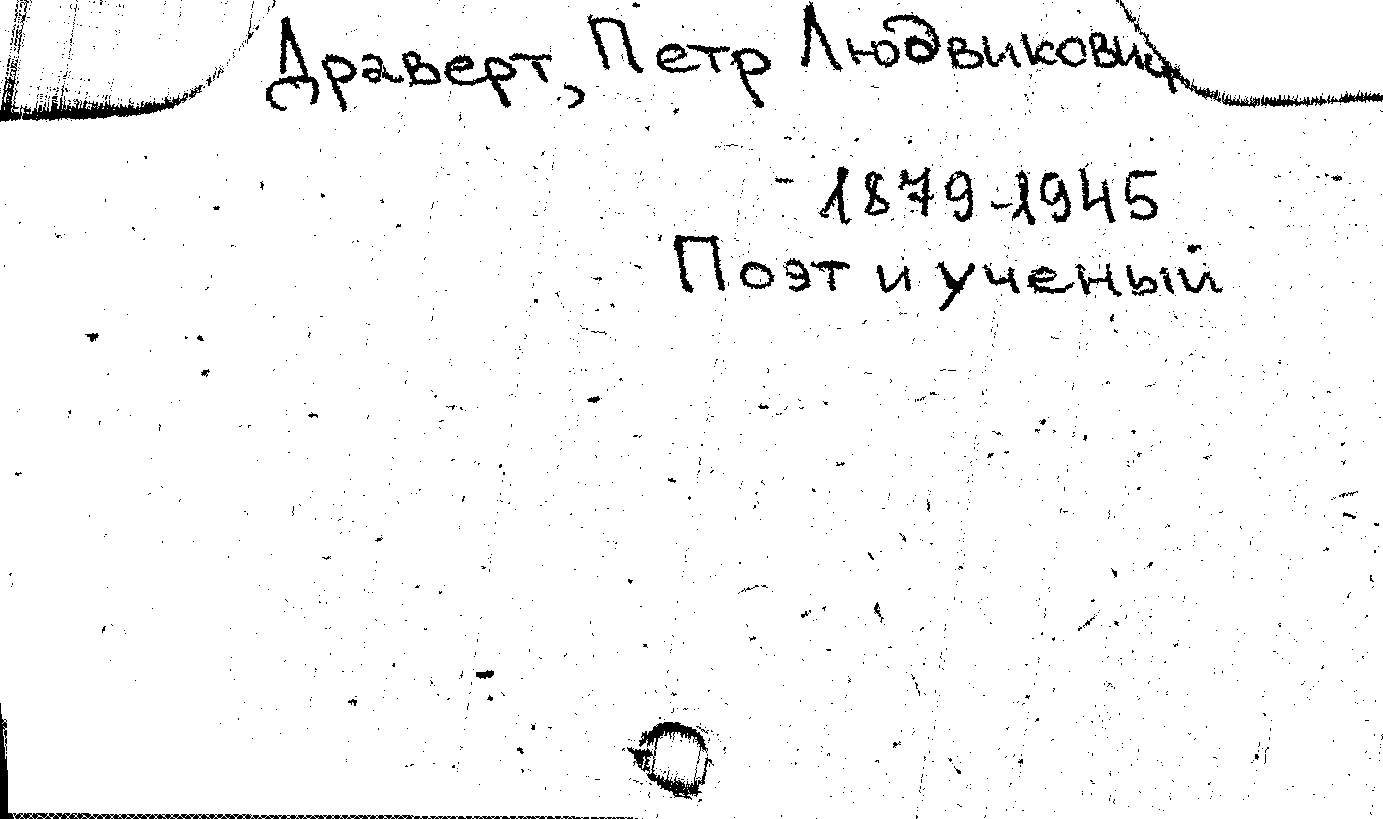 Драверт, Петр Людвикович
1879-1945
Поэт и ученый